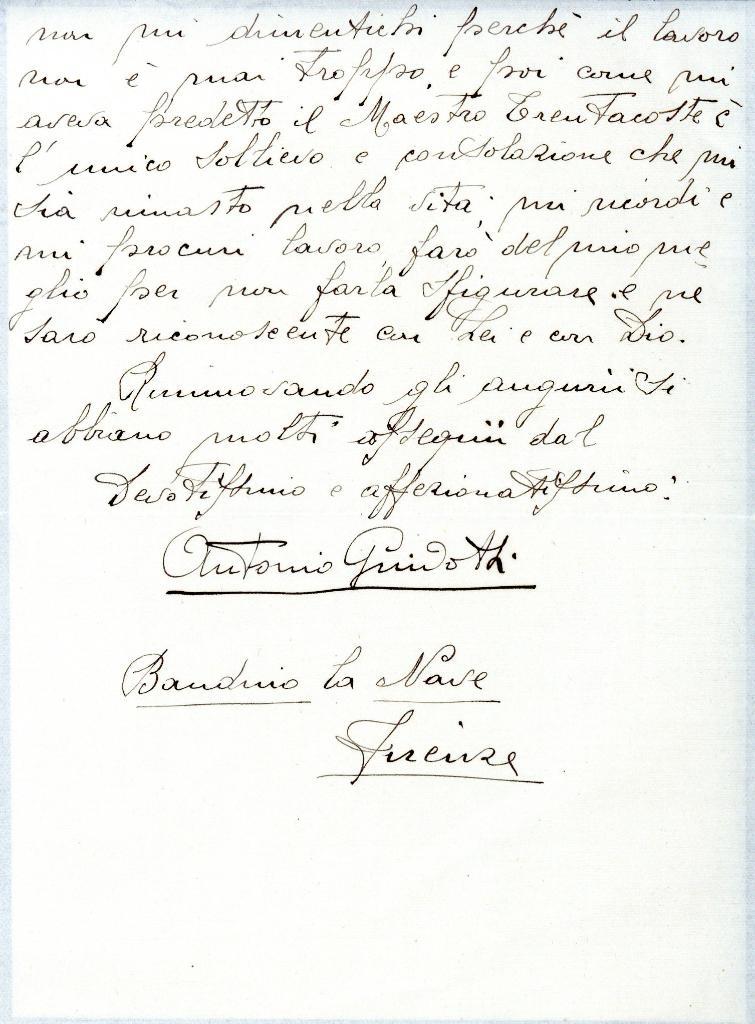 non mi dimentichi perchè il lavoro
non è mai troppo, e poi come mi
aveva predetto il Maestro Trentacoste è
l'unico sollievo e consolazione che mi
sia rimasto nella vita; mi ricordi e
mi procuri lavoro, farò del mio me
glio per non farla sfigurare e ne
sarò riconoscente con Lei e con Dio.
Rinnovando gli augurii si
abbiano molti ossequii dal
Devotissimo e affezionatissimo:
Antonio Guidotti.
Bandino la Nave
Firenze